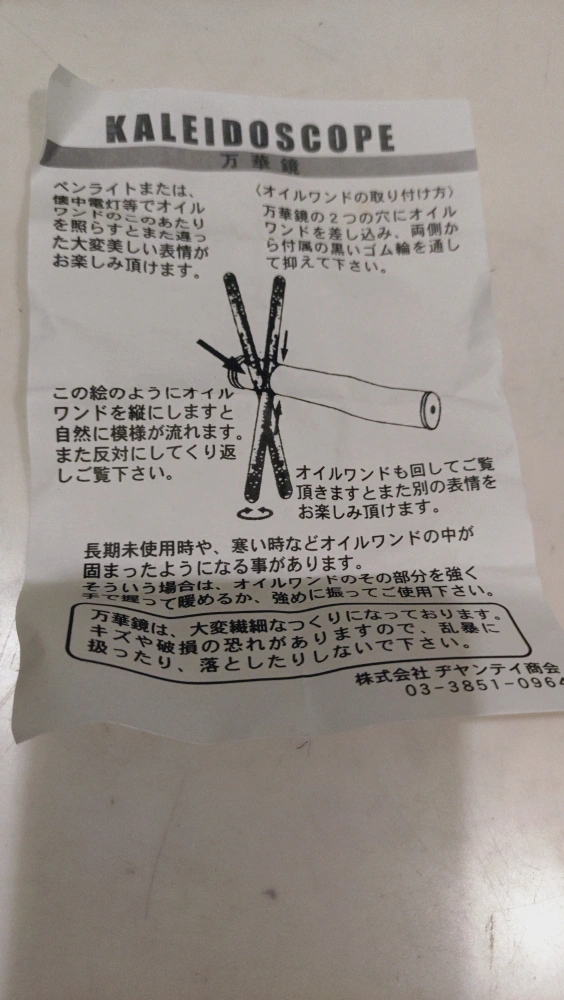 KALEIDOSCOPE
万華鏡
ペンライトまたは、
懐中電灯等でオイル
ワンドのこのあたり
を照らすとまた違っ
た大変美しい表情が
お楽しみ頂けます。
〈オイルワンドの取り付け方〉
万華鏡の2つの穴にオイル
ワンドを差し込み、両側か
ら付属の黒いゴム輪を通し
て抑えて下さい。
この絵のようにオイル
ワンドを縦にしますと
自然に模様が流れます。
また反対にしてくり返
しご覧下さい。
オイルワンドも回してご覧
頂きますとまた別の表情を
お楽しみ頂けます。
長期未使用時や、寒い時などオイルワンドの中が
固まったようになる事があります。
そういう場合は、オイルワンドのその部分を強く
手で握って暖めるか、強めに振ってご使用下さい。
万華鏡は、大変繊細なつくりになっております。
キズや破損の恐れがありますので、乱暴に
扱ったり、落としたりしないで下さい。
株式会社 チヤンテイ商会
03-3851-0964